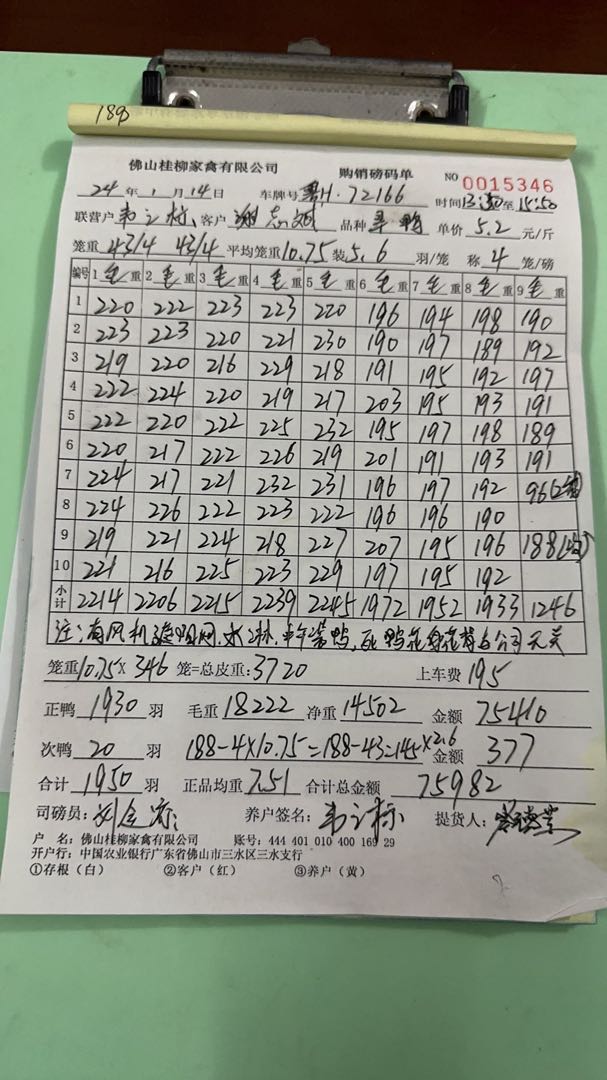 189
佛山桂柳家禽有限公司 购销磅码单 NO 0015346
24 年 1 月 14 日 车牌号 粤H·72166 时间 13:30 至 15:50
联营户 韦之标 客户 谢志 品种 单价 5.2 元/斤
笼重 43/4 43/4 平均笼重 10.75 装 5.6 羽/笼 称 4 笼/磅
编号 1 毛 重 2 毛 重 3 毛 重 4 毛 重 5 毛 重 6 毛 重 7 毛 重 8 毛 重 9 毛 重
1 220 222 223 223 220 196 194 198 190
2 223 223 220 221 230 190 197 189 192
3 219 220 216 229 218 191 195 192 197
4 222 224 220 219 217 203 195 193 191
5 222 220 222 225 232 195 197 198 189
6 220 217 222 226 219 201 191 193 191
7 224 217 221 232 231 196 197 192 96(2笼)
8 224 226 222 223 222 196 196 190
9 219 221 224 218 227 207 195 196 188
10 221 216 225 223 229 197 195 192
小计 2214 2206 2215 2239 2245 1972 1952 1933 1246
注：有风机 鸭 网 水 死 鸭 公司无关
笼重 10.75 X 346 笼=总皮重：3720 上车费 195
正鸭 1930 羽 毛重 18222 净重 14502 金额 75410
次鸭 20 羽 188-4×10.75=188-43=145×2.6 金额 377
合计 1950 羽 正品均重 7.51 合计总金额 75982
司磅员： 刘金 养户签名： 韦之标 提货人：
户 名：佛山桂柳家禽有限公司 账号：444 401 010 400 169 29
开户行：中国农业银行广东省佛山市三水区三水支行
①存根（白） ②客户（红） ③养户（黄）